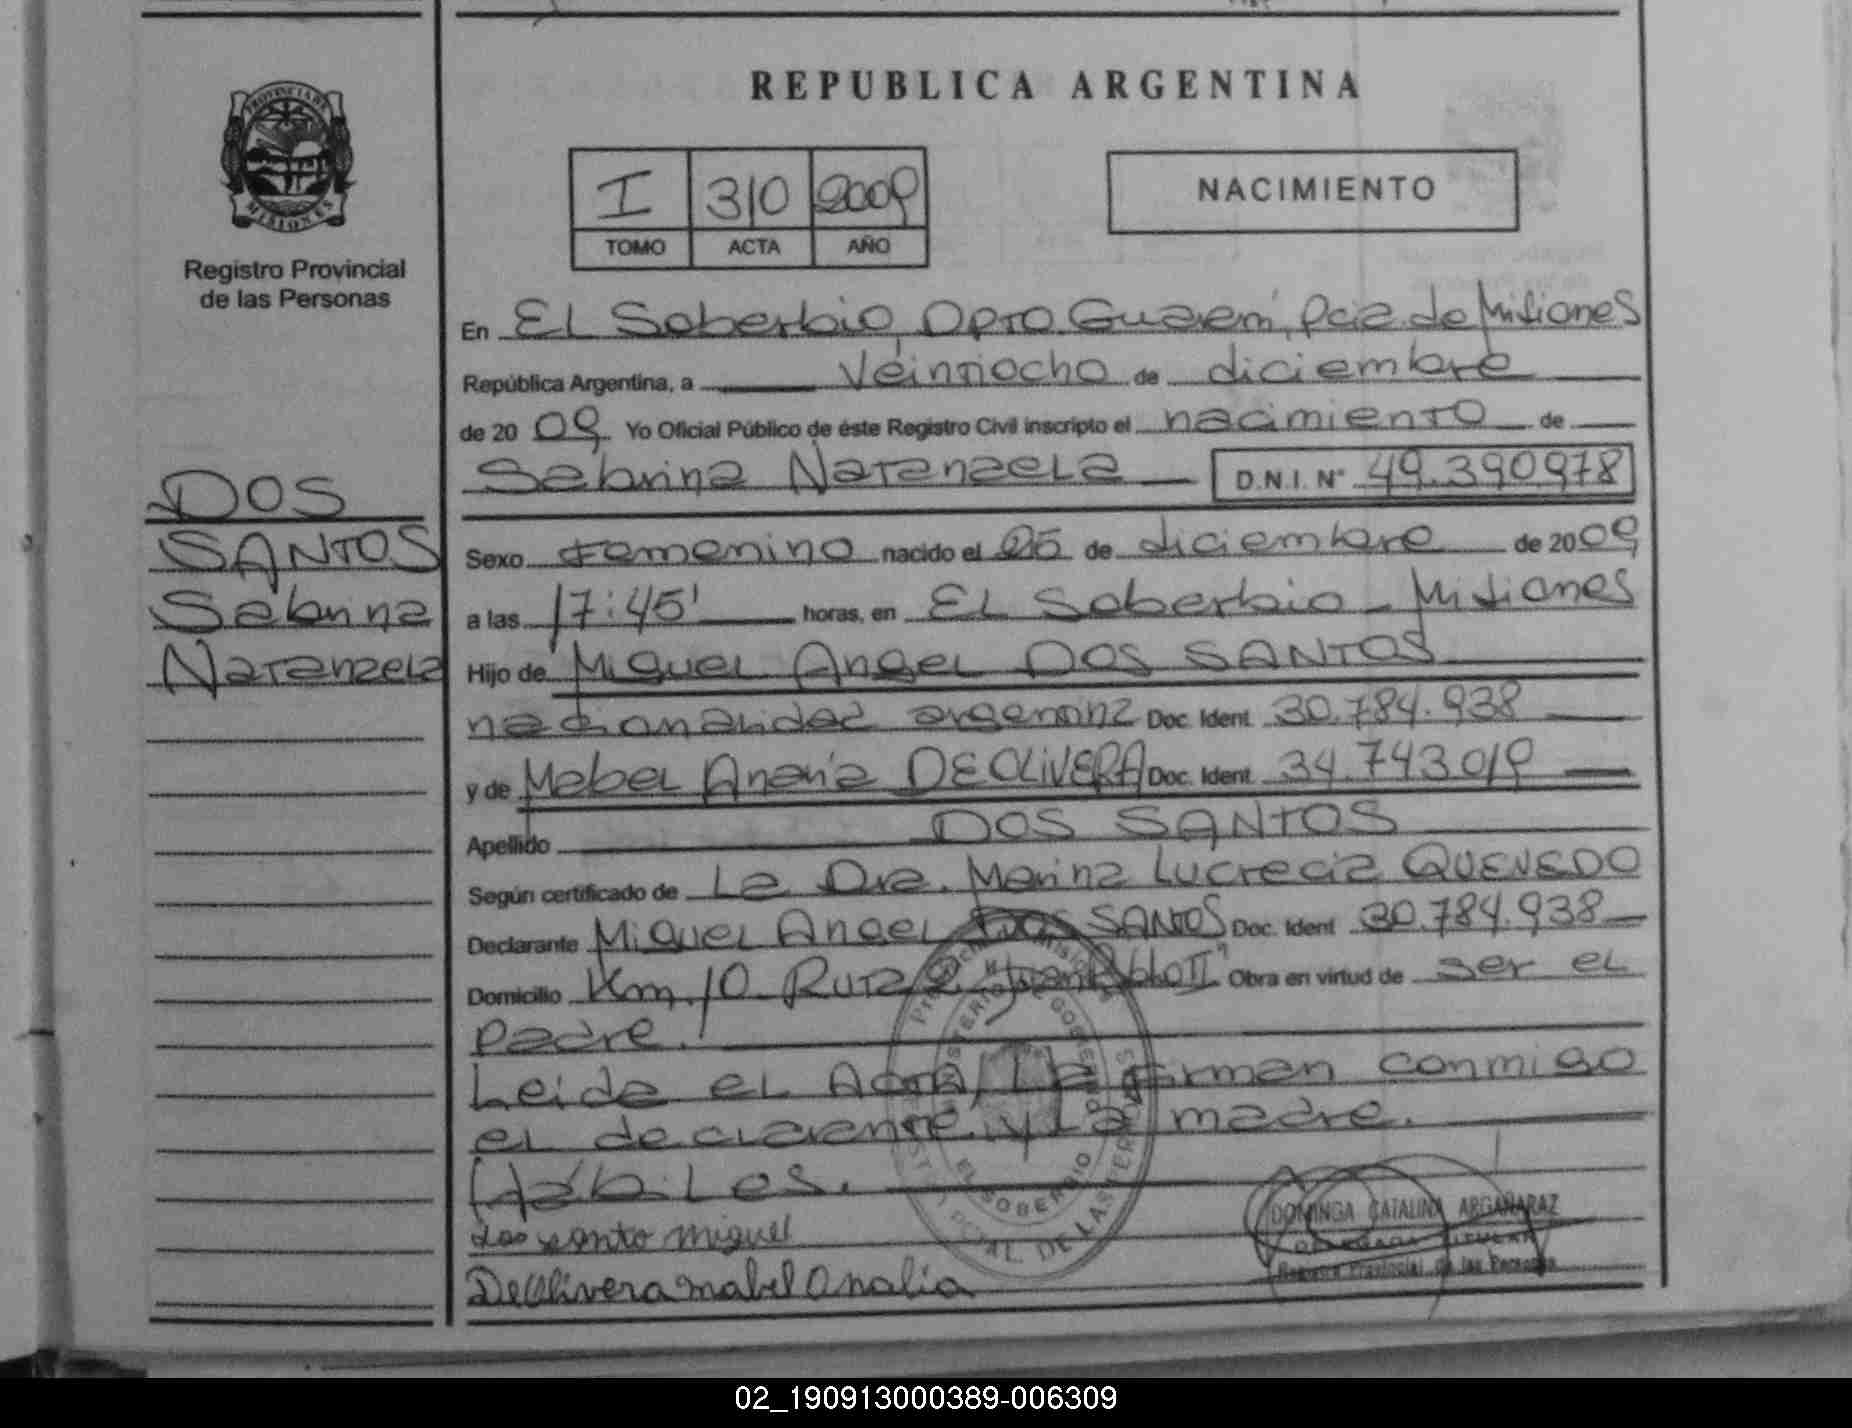 REPUBLICA ARGENTINA
PROVINCIA DE
MISIONES
Registro Provincial
de las Personas
I 310 2009
TOMO ACTA AÑO
NACIMIENTO
DOS
SANTOS
Sabrina
Natanaela
En El Soberbio, Dpto. Guaraní, Pcia de Misiones
República Argentina, a veintiocho de diciembre
de 20 09 Yo Oficial Público de éste Registro Civil inscripto el nacimiento de
Sabrina Natanaela D.N.I. N° 49.390.978
Sexo Femenino nacido el 25 de diciembre de 20 09
a las 17:45' horas, en El Soberbio - Misiones
Hijo de Miguel Angel DOS SANTOS
nacionalidad argentina Doc. Ident. 30.784.938
y de Mabel DE OLIVERA Doc. Ident. 34.743.019
Apellido DOS SANTOS
Según certificado de La Dra. Marina Lucrecia QUEVEDO
Declarante Miguel Angel DOS SANTOS Doc. Ident 30.784.938
Domicilio Km. 10 Ruta 2 "Juan Pablo II" Obra en virtud de ser el
padre.
Leida el Acta, La firman conmigo
el declarante y La madre.
Hábiles.
dos santo miguel
De Olivera mabel Analia
EL SOBERBIO
DOMINGA CATALINA ARGAÑARAZ
DELEGADA TITULAR
Registro Provincial de las Personas
02_190913000389-006309